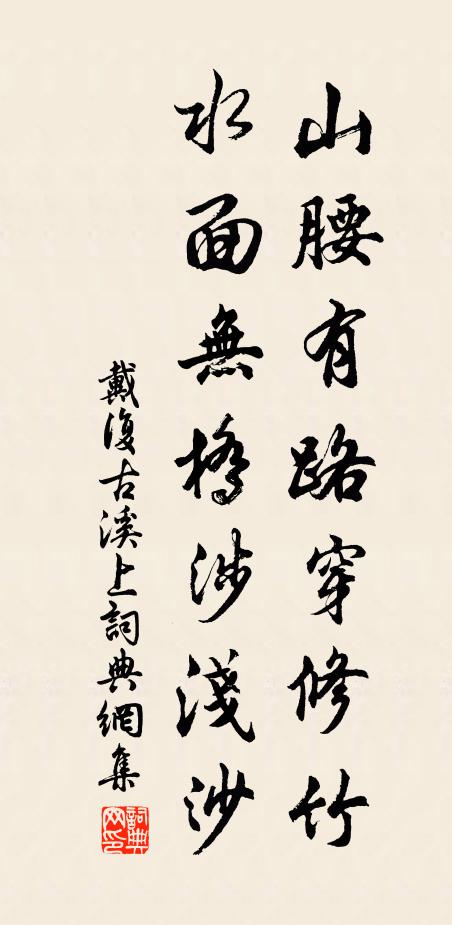 山腰有路穿修竹
水面無橋涉淺沙
戴復古溪上詞典網集
詞典网印